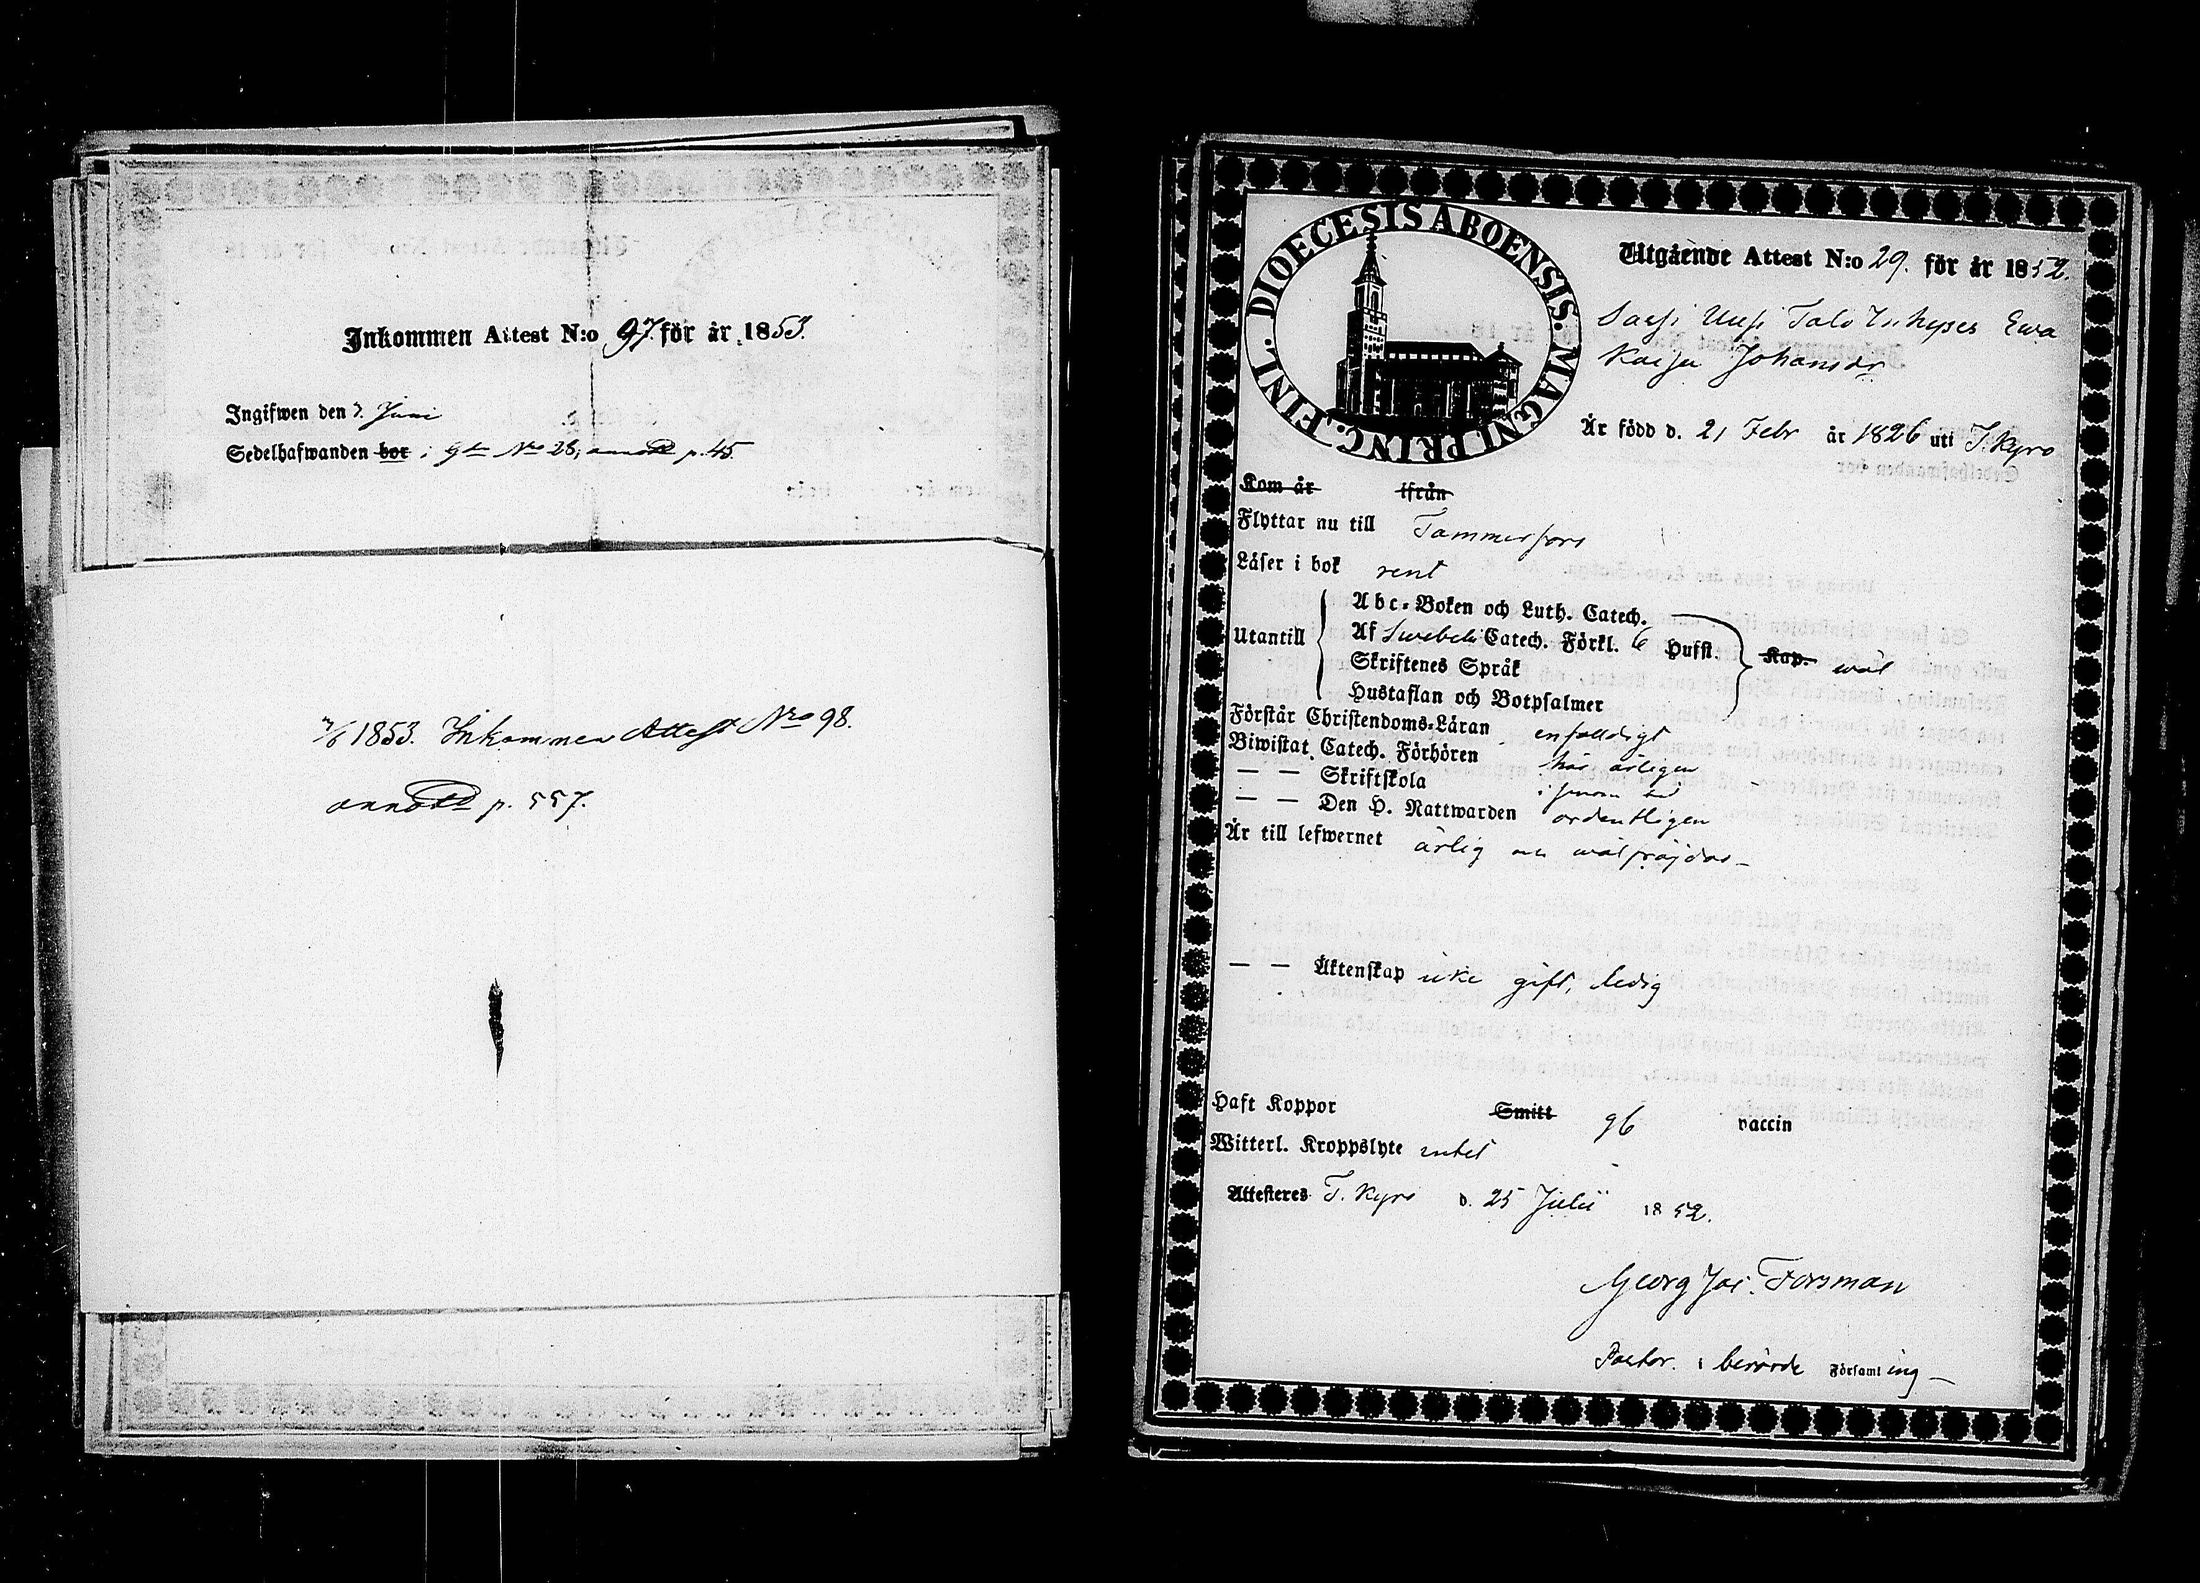 Inkommen Attest N:o 97. för år 1853.
Ingifwen den 7. Juni
Sedelhafwanden bor i gln No 28, annotd p. 45.
7/6 1853. Inkommen Attest Nro 98.
annotd p. 557.
DIOECESIS ABOENSIS. MAGNI PRINC. FINL.
Utgående Attest N:o 29. för år 1852.
Uusi Talo Inhyses Ewa
Kaisa Johansdr
Är född d. 21 Febr år 1826 uti T.Kyro
Kom år ifrån
Flyttar nu till Tammerfors
Läser i bok rent
Utantill
Abc-Boken och Luth. Catech.
Af Swebeli Catech. Förkl. 6 Hufst. Kap. wäl
Skriftenes Språk
Hustaflan och Botpsalmer
Förstår Christendoms-Läran enfaldigt
Biwistat Catech. Förhören här årligen
— — Skriftskola i sinom tid
— — Den H. Nattwarden ordentligen
Är till lefwernet ärlig och wälfräjdad —
— — Äktenskap icke gift, ledig
Haft Koppor Smitt gb vaccin
Witterl. Kroppslyte intet
Attesteres T. Kyro d. 25 Julii 1852.
Georg Jac. Forsman
Pastor i berörde Församling —